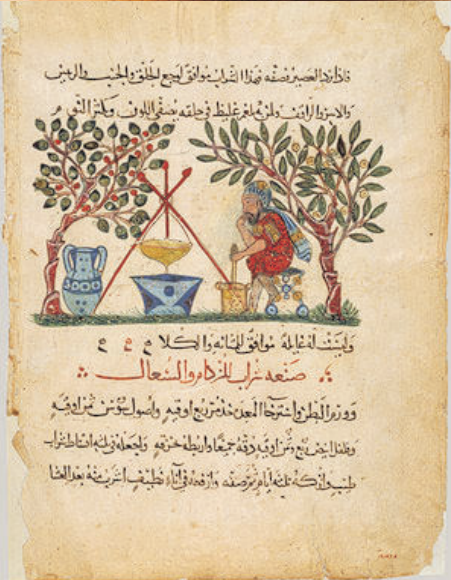 فاذا برد العصير فصفه فهذا الشراب موافق لوجع الحلق والجنب
ولمن به بلغم غليظ في حلقه يصفي اللون ويكثر النوم
وليست له غايلة موافق للمثانة والكلا
صنعة شراب للزكام والسعال
وورم البطن واسترخا المعدة خذ مر ربع اوقيه واصول سوسن ثمن اوقيه
وفلفل ابيض ربع وثمن اوقيه دقه جميعا واربطه بخرقه واجعله في ثلثه اقساط شراب
طيب واتركه ثلثه ايام ثم صفه وارفعه في آناء نظيف اشرب منه بعد العشا